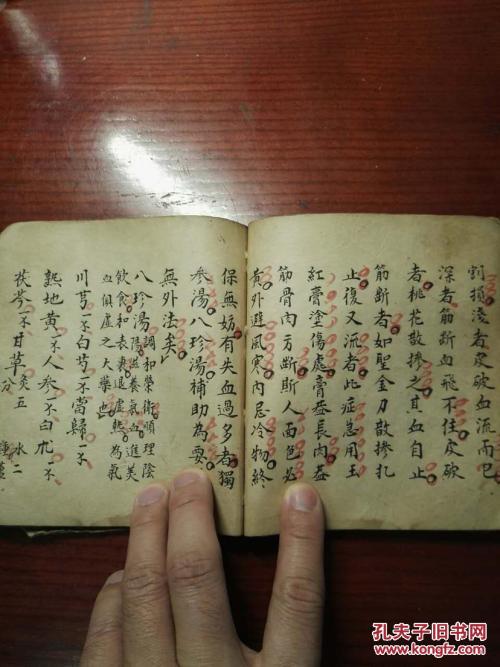 割損淺者皮破血流而已
深者筋斷血飛不住皮破
者桃花散摻之其血自止
筋斷者如聖金刀散摻扎
止後又流者此症急用玉
紅膏塗傷處膏蓋長肉蓋
筋骨肉方斷斯人面色必
黄外避風寒内忌冷物終
保無妨有失血過多者獨
參湯八珍湯補助為要
無外法矣
八珍湯 調和榮衛順理陰
陽滋養氣血進美
飲食和表裏退虛熱為氣
血俱虛之大藥也
川芎一不白芍一不當歸一不
熟地黄一不人參一不白朮一不
茯苓一不甘草炙五分 水二
孔夫子旧书网
www.kongfz.com